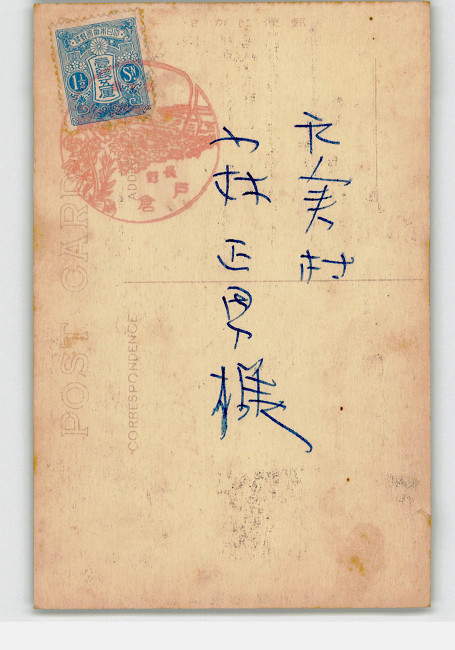 郵便はがき
村
小林正男様
大日本帝國郵便
壹錢五厘
1½ Sn
戸倉
POST CARD
CORRESPONDENCE
ADDRESS